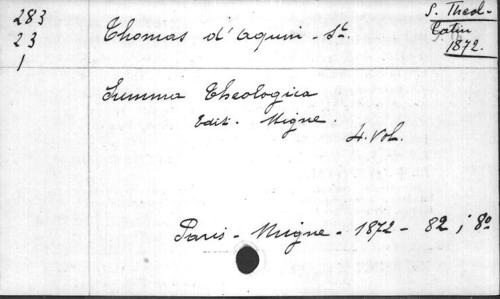 283
23
1
Thomas d'Aquin - St.
S. Theol.
Latin
1872.
Summa Theologica
Edit. Migne.
4. Vol.
Paris - Migne - 1872 - 82 ; 8o